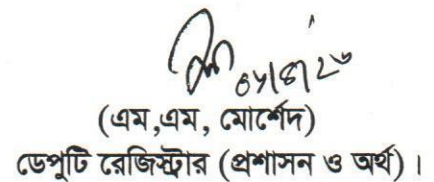 (এম,এম, মোর্শেদ)
ডেপুটি রেজিস্ট্রার (প্রশাসন ও অর্থ)।